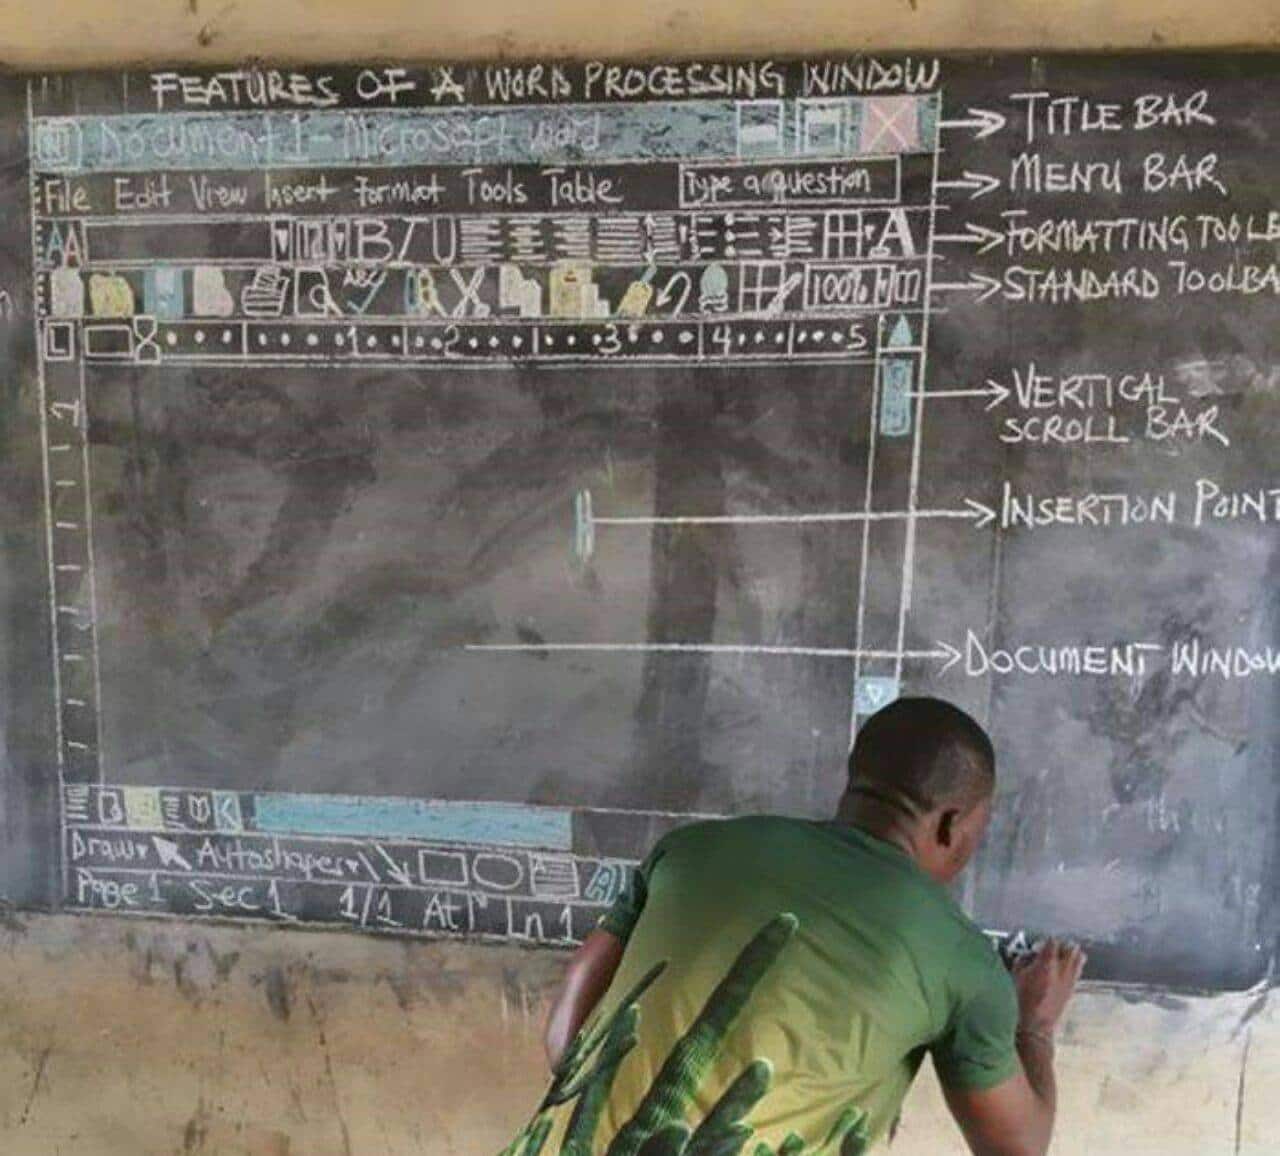 FEATURES OF A WORD PROCESSING WINDOW
Document 1 - Microsoft Word
TITLE BAR
File Edit View Insert Format Tools Table
Type a question
MENU BAR
AA
B I U
A
FORMATTING TOOLB
ABC
100%
STANDARD TOOLBA
L
1 2 3 4 5
VERTICAL
SCROLL BAR
INSERTION POINT
DOCUMENT WINDOW
Draw Autoshapes
A
Page 1 Sec 1 1/1 At 1" Ln 1
TA